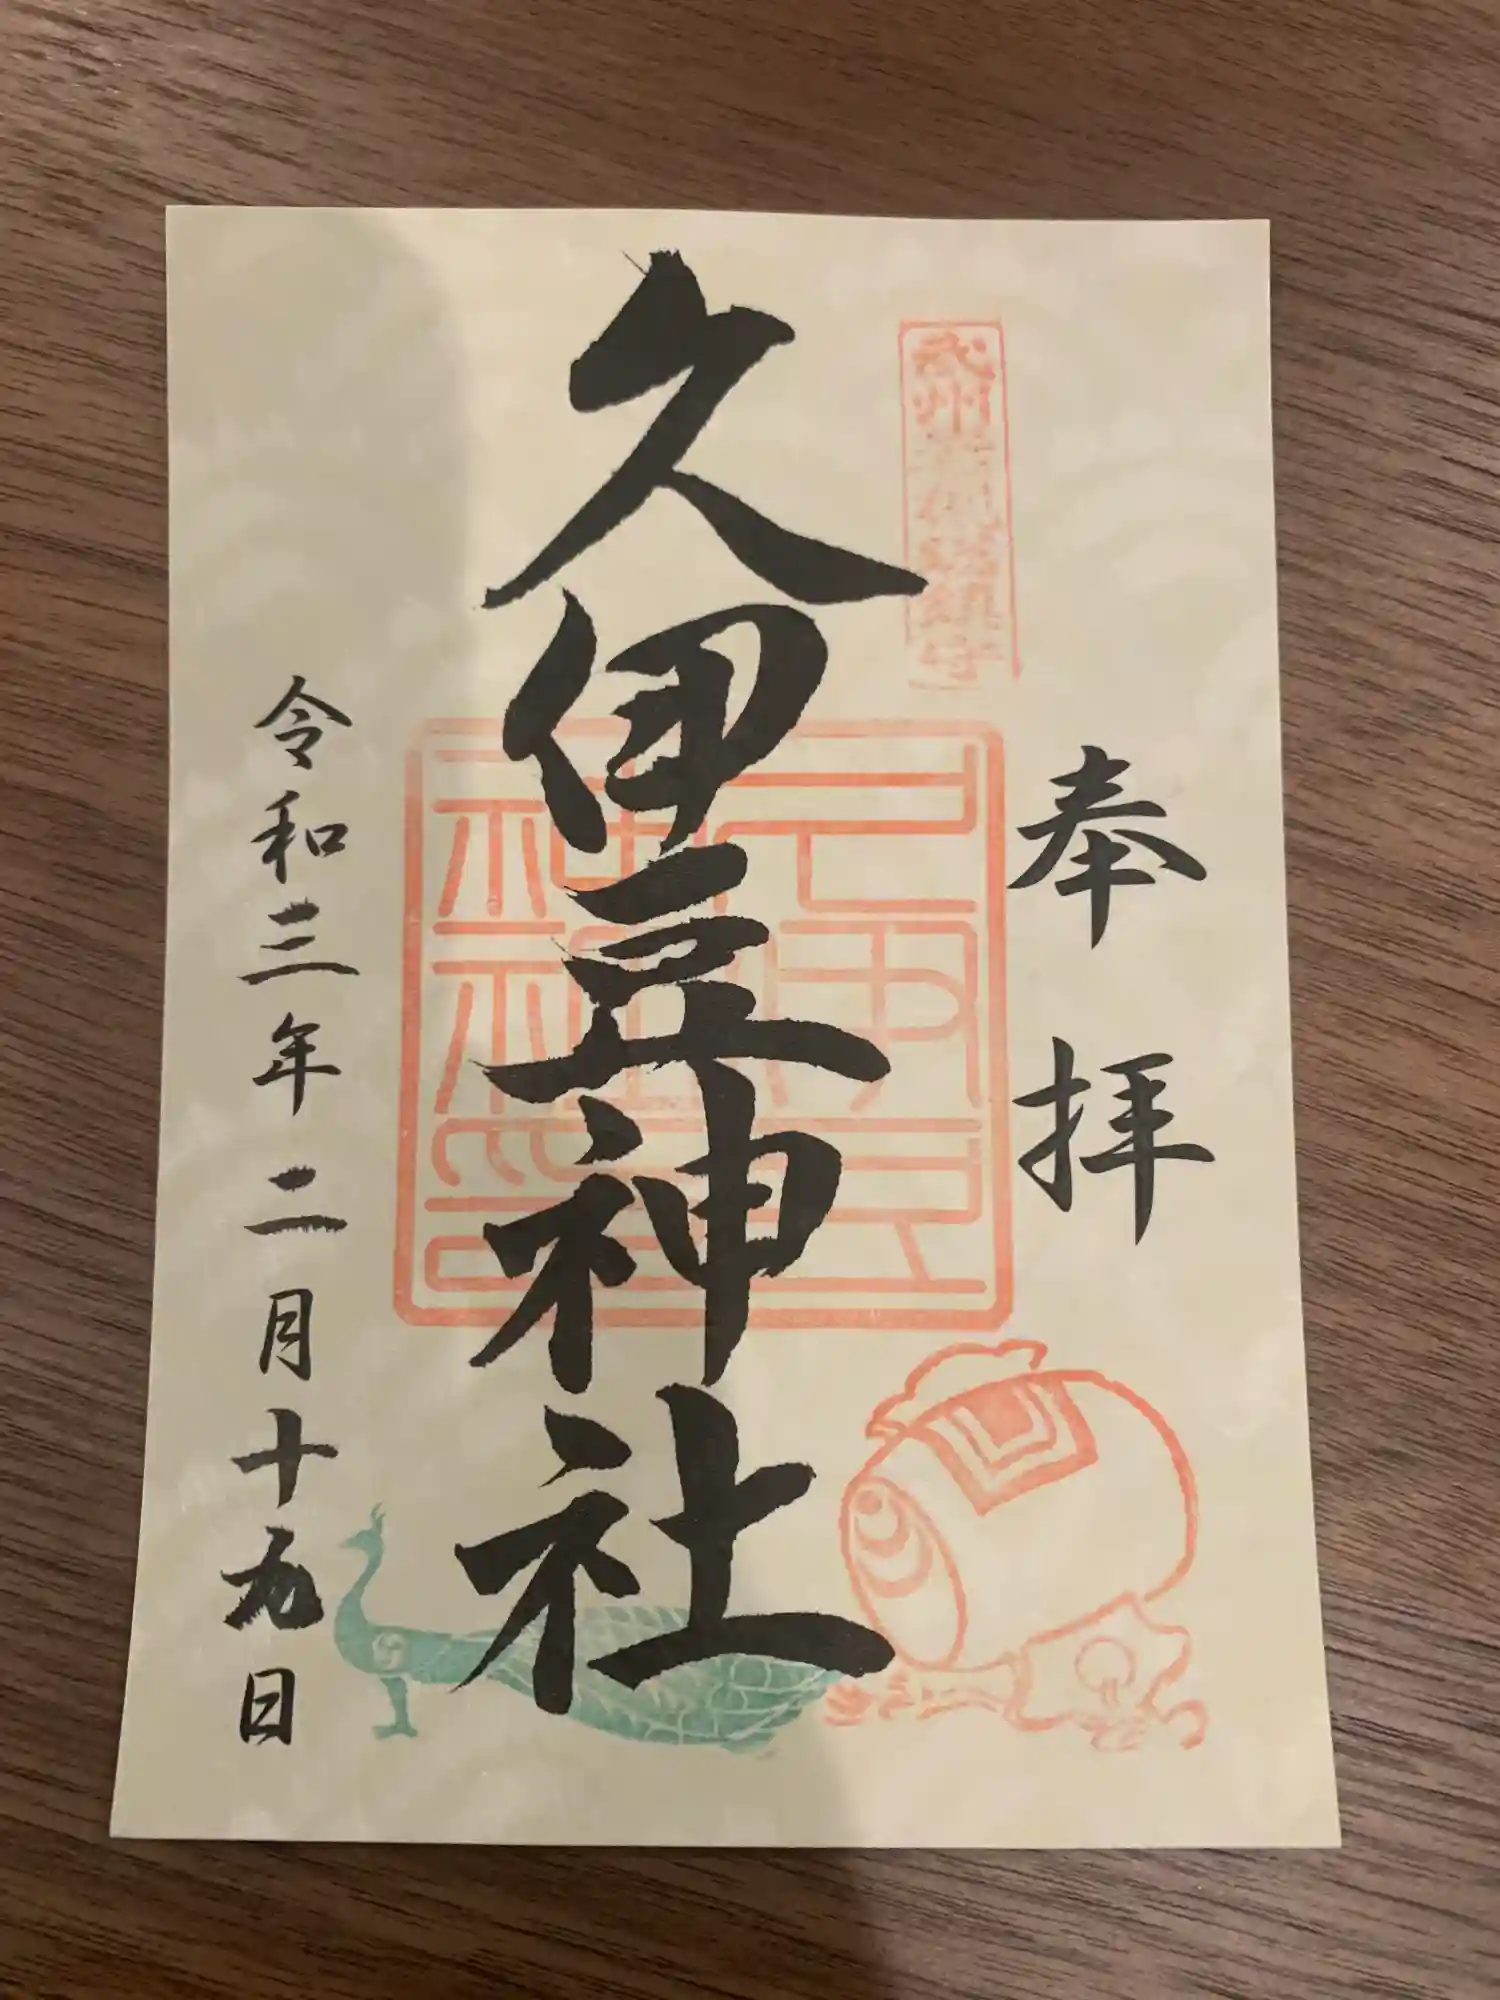 奉拝
久伊豆神社
令和三年二月十九日